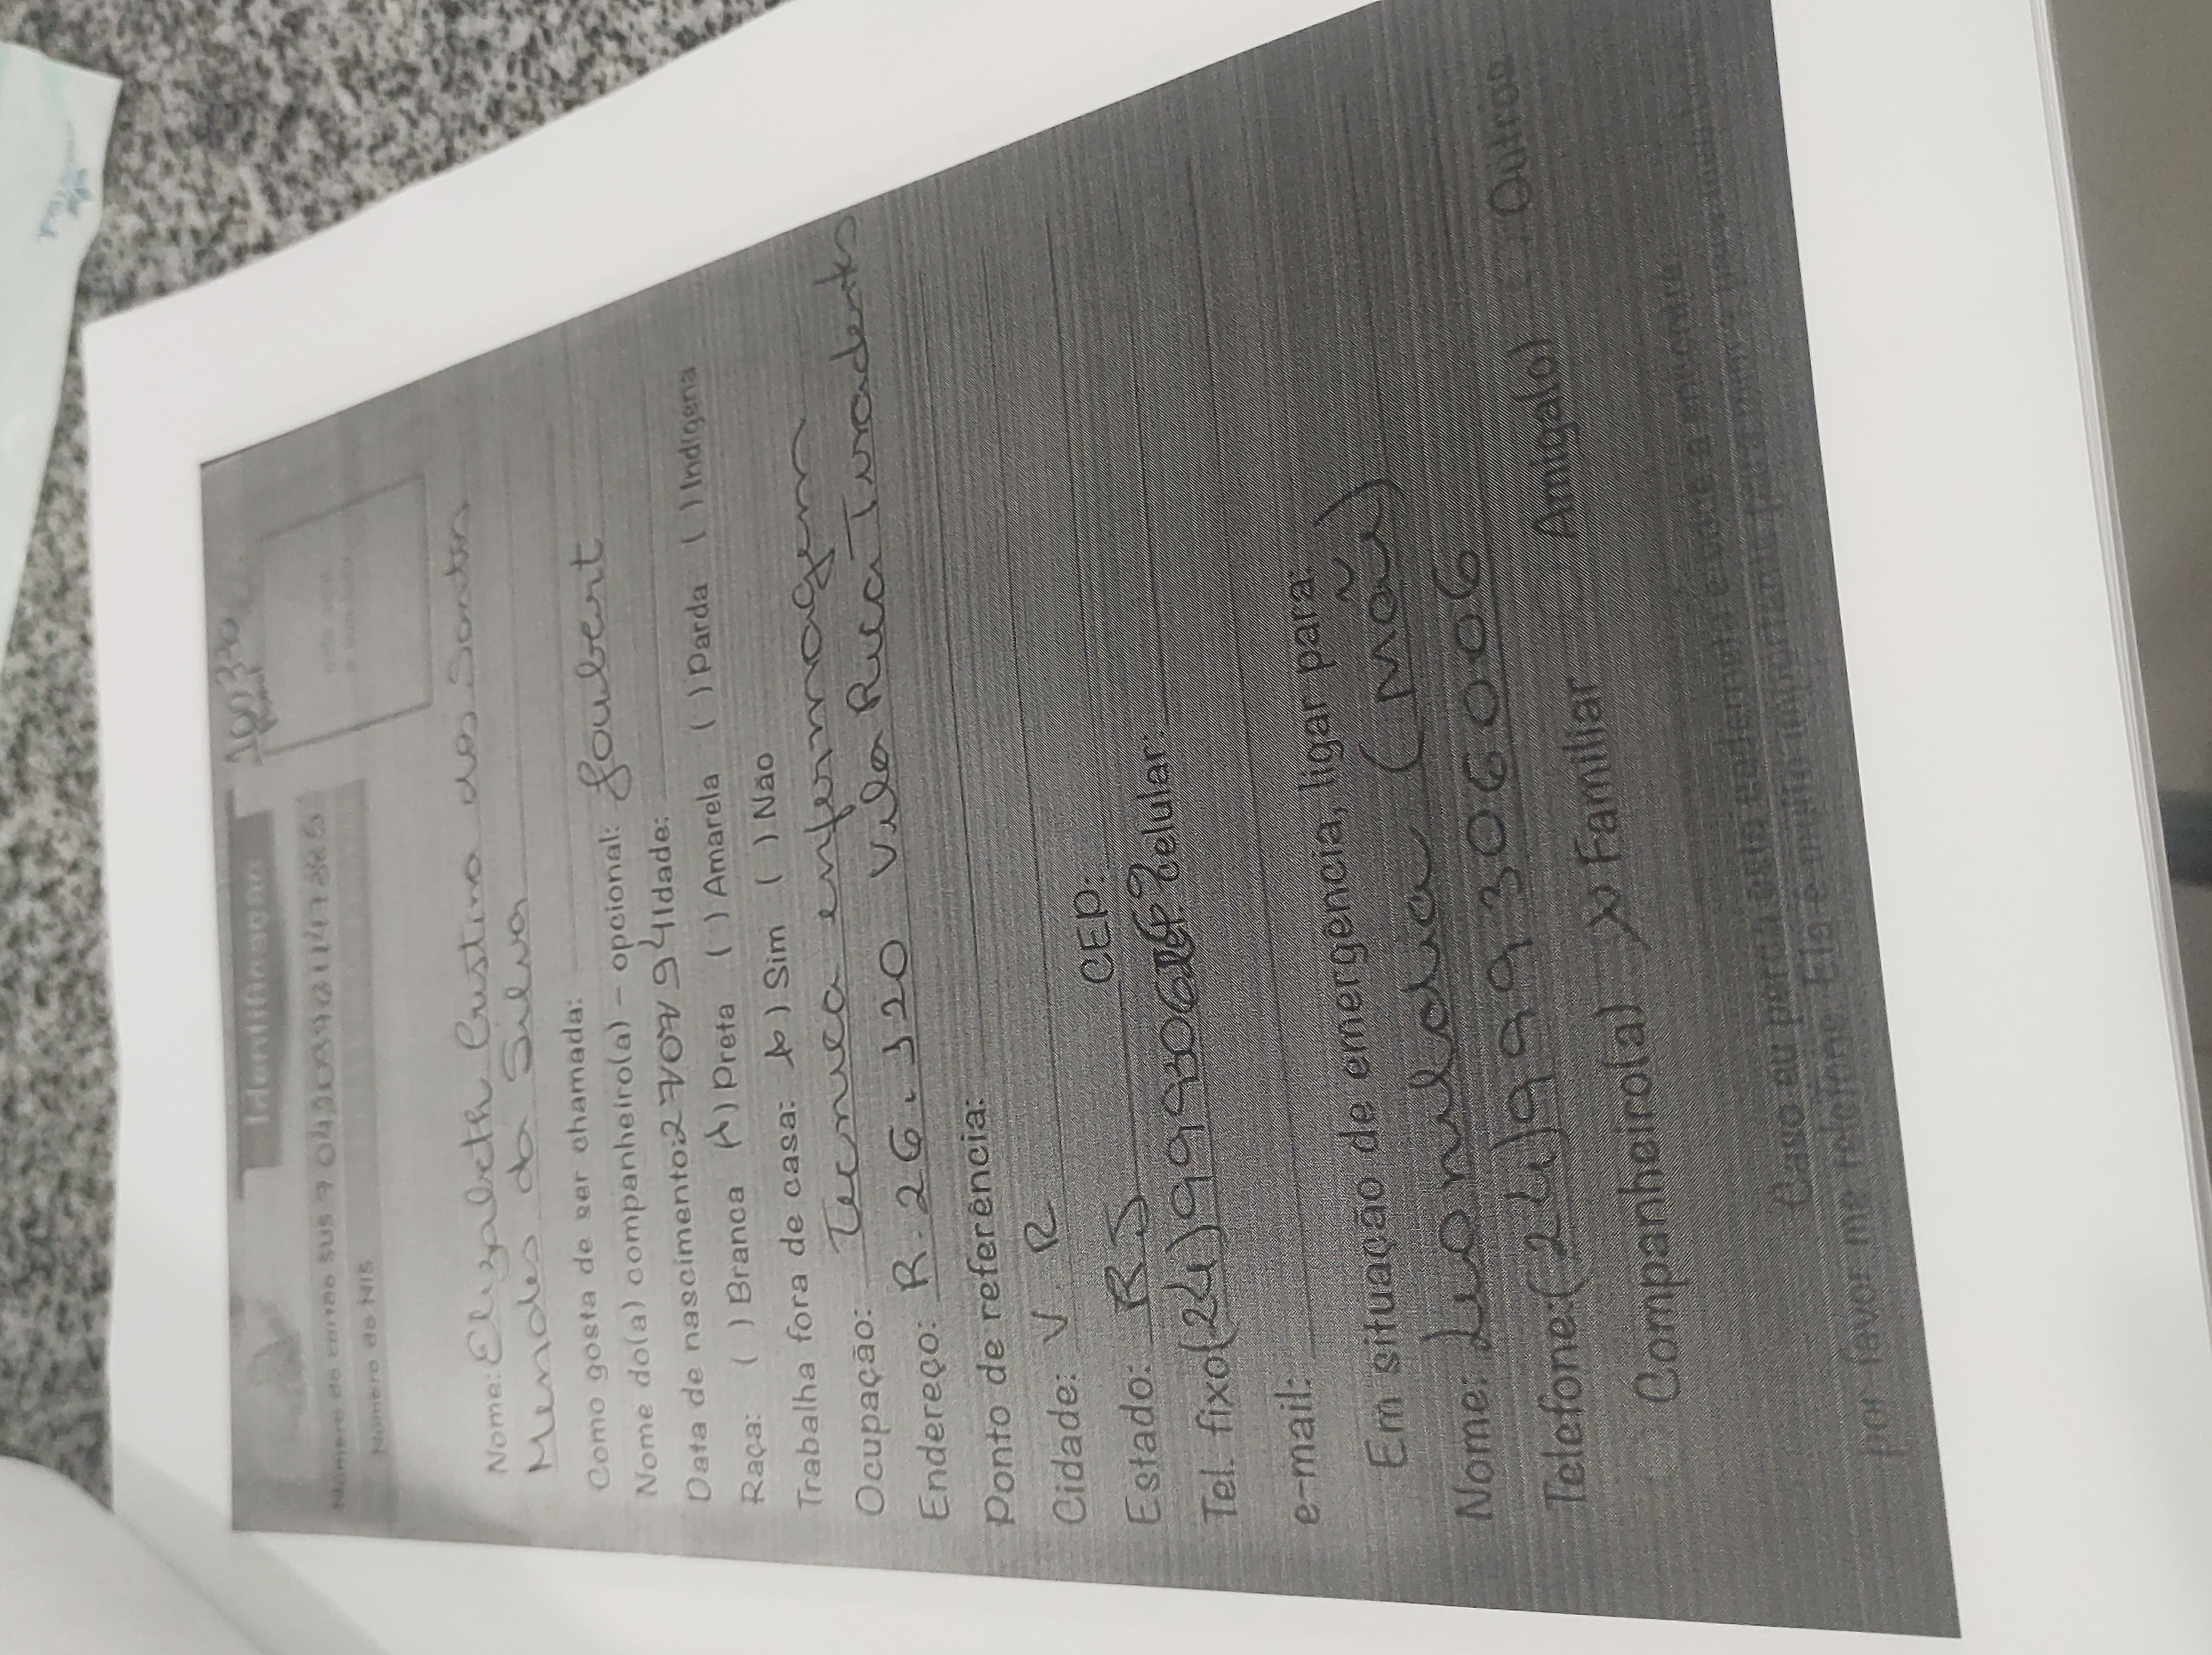 Identificação
Número do cartão SUS
Número do NIS
Nome: Elizabeth Cristina dos Santos
Mendes da Silva
Como gosta de ser chamada:
Nome do(a) companheiro(a) - opcional: Joubert
Data de nascimento: 270794 Idade:
Raça: ( ) Branca (X) Preta ( ) Amarela ( ) Parda ( ) Indígena
Trabalha fora de casa: (X) Sim ( ) Não
Ocupação: Tecnica enfermagem
Endereço: R. 26. 320 Vila Rica Tiradentes
Ponto de referência:
Cidade: V. R
Estado: RJ CEP:
Tel. fixo (24) Celular:
e-mail:
Em situação de emergência, ligar para:
Nome: Leonildia (mãe)
Telefone: (24) 999306006
Companheiro(a) (X) Familiar Amiga(o) Outros
Caso eu perca esta caderneta e você a encontre,
por favor me telefone. Ela é muito importante para mim e para meu bebê.